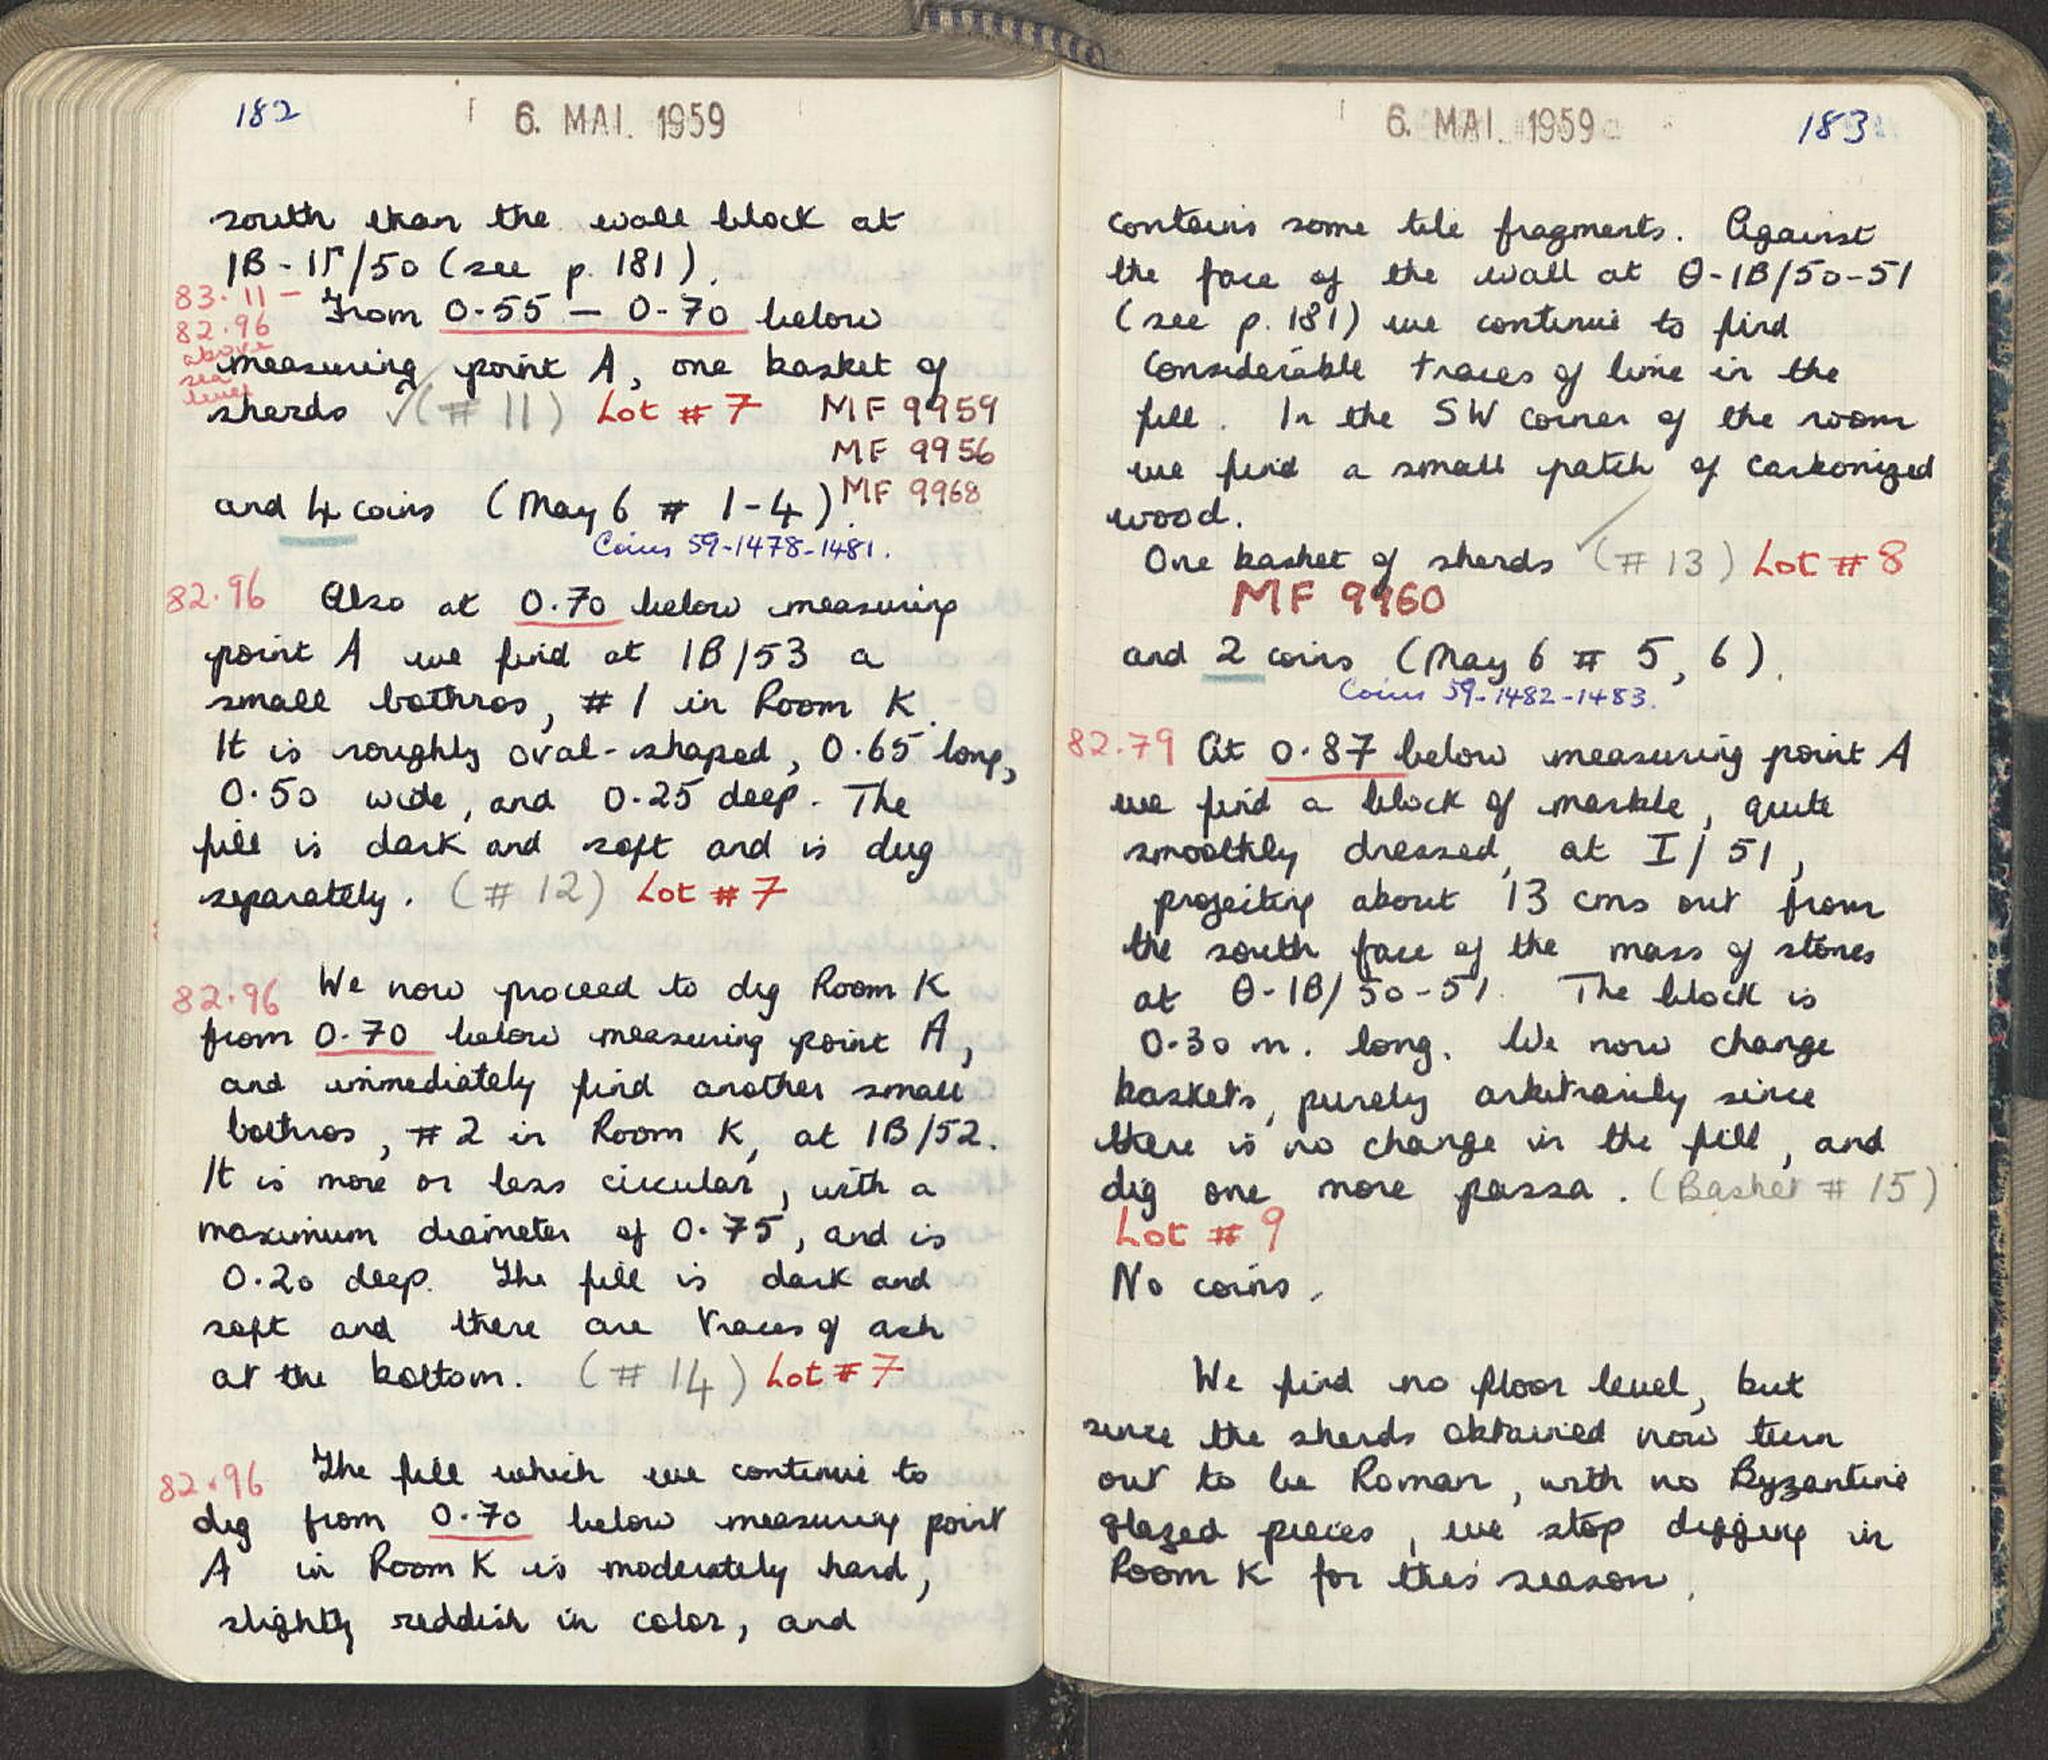 182
6. MAI. 1959
south than the wall block at
IB-IΓ/50 (see p. 181).
83.11 -
82.96
above
sea
level
From 0.55 — 0.70 below
measuring point A, one basket of
sherds ✓ (# 11) Lot # 7 MF 9959
MF 9956
MF 9968
and 4 coins (May 6 # 1-4).
Coins 59-1478-1481.
82.96 Also at 0.70 below measuring
point A we find at IB/53 a
small bothros, # 1 in Room K.
It is roughly oval-shaped, 0.65 long,
0.50 wide, and 0.25 deep. The
fill is dark and soft and is dug
separately. (# 12) Lot # 7
82.96 We now proceed to dig Room K
from 0.70 below measuring point A,
and immediately find another small
bothros, # 2 in Room K, at IB/52.
It is more or less circular, with a
maximum diameter of 0.75, and is
0.20 deep. The fill is dark and
soft and there are traces of ash
at the bottom. (# 14) Lot # 7
82.96 The fill which we continue to
dig from 0.70 below measuring point
A in Room K is moderately hard,
slightly reddish in color, and
6. MAI. 1959
183
contains some tile fragments. Against
the face of the wall at Θ-IB/50-51
(see p. 181) we continue to find
considerable traces of lime in the
fill. In the SW corner of the room
we find a small patch of carbonized
wood.
One basket of sherds ✓ (# 13) Lot # 8
MF 9960
and 2 coins (May 6 # 5, 6).
Coins 59-1482-1483.
82.79 At 0.87 below measuring point A
we find a block of marble, quite
smoothly dressed, at I/51,
projecting about 13 cms out from
the south face of the mass of stones
at Θ-IB/50-51. The block is
0.30 m. long. We now change
baskets, purely arbitrarily since
there is no change in the fill, and
dig one more passa. (Basket # 15)
Lot # 9
No coins.
We find no floor level, but
since the sherds obtained now turn
out to be Roman, with no Byzantine
glazed pieces, we stop digging in
Room K for this season.